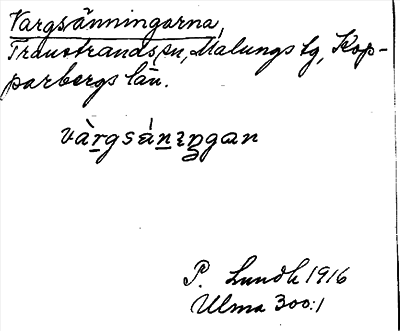 Vargsänningarna,
Transtrands sn, Malungs tg, Kop-
parbergs län.
và̲rgsá̈n̲ɩŋgan
P. Lundh 1916
Ulma 300:1